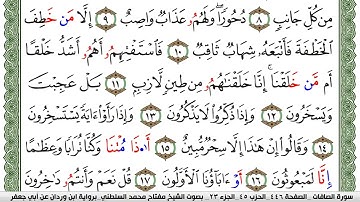 مِن كُلِّ جَانِبٍ ٨ دُحُورًا وَلَهُمُ عَذَابٌ وَاصِبٌ ٩ إِلَّا مَنْ خَطِفَ
الْخَطْفَةَ فَأَتْبَعَهُ شِهَابٌ ثَاقِبٌ ١٠ فَاسْتَفْتِهِمُ أَهُمُ أَشَدُّ خَلْقًا
أَم مَّنْ خَلَقْنَا إِنَّا خَلَقْنَاهُمُ مِن طِينٍ لَّازِبٍ ١١ بَلْ عَجِبْتَ
وَيَسْخَرُونَ ١٢ وَإِذَا ذُكِّرُوا لَا يَذْكُرُونَ ١٣ وَإِذَا رَأَوْا ءَايَةً يَسْتَسْخِرُونَ
١٤ وَقَالُوا إِنْ هَذَا إِلَّا سِحْرٌ مُّبِينٌ ١٥ أَ۟ذَا مُتْنَا وَكُنَّا تُرَابًا وَعِظَامًا
إِنَّا لَمَبْعُوثُونَ ١٦ أَوْ ءَابَاؤُنَا الْأَوَّلُونَ ١٧ قُلْ نَعَمْ وَأَنتُمُ دَاخِرُونَ
سورة الصافات . الصفحة ٤٤٦ . الحزب ٤٥ . الجزء ٢٣ . بصوت الشيخ مفتاح محمد السلطني . برواية ابن وردان عن أبي جعفر